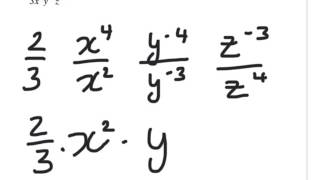 2/3 x⁴/x² y⁻⁴/y⁻³ z⁻³/z⁴
2/3 · x² · y